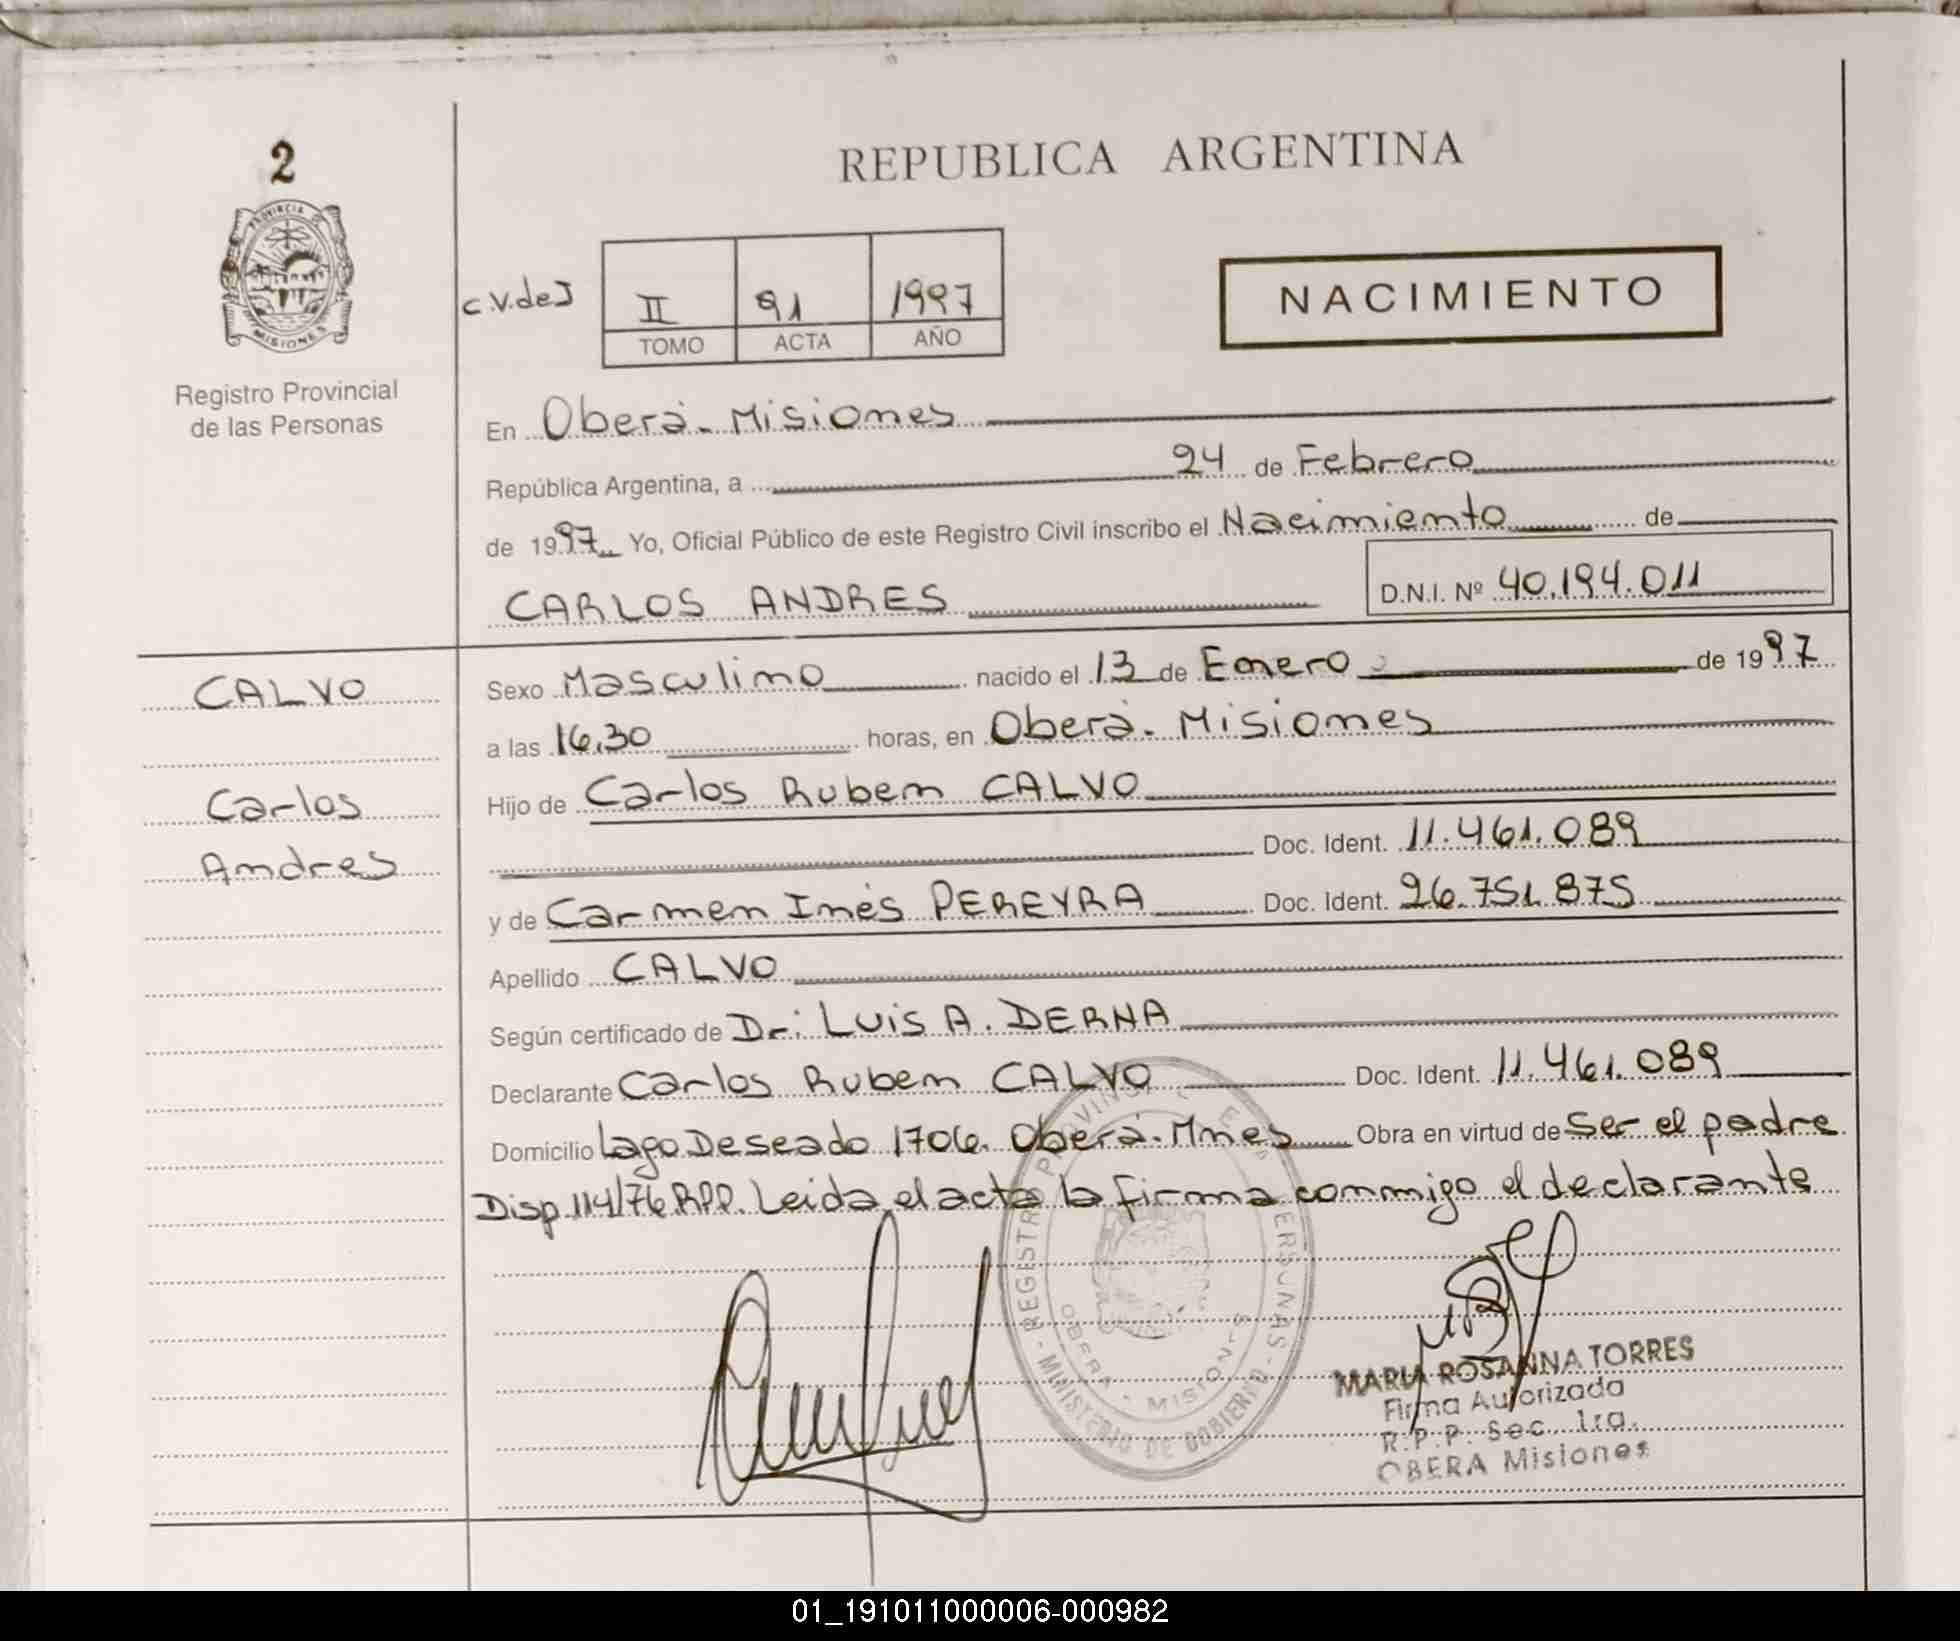 2
PROVINCIA DE
MISIONES
Registro Provincial
de las Personas
REPUBLICA ARGENTINA
C.V.deJ
II 91 1997
TOMO ACTA AÑO
NACIMIENTO
En Oberá - Misiones
República Argentina, a 24 de Febrero
de 1997 Yo, Oficial Público de este Registro Civil inscribo el Nacimiento de
CARLOS ANDRES D.N.I. Nº 40.194.011
CALVO
Carlos
Andres
Sexo Masculino nacido el 13 de Enero de 1997
a las 16,30 horas, en Oberá - Misiones
Hijo de Carlos Ruben CALVO
Doc. Ident. 11.461.089
y de Carmen Inés PEREYRA Doc. Ident. 26.751.875
Apellido CALVO
Según certificado de Dr: LUIS A. DERNA
Declarante Carlos Ruben CALVO Doc. Ident. 11.461.089
Domicilio Lago Deseado 1706. Oberá - Mnes Obra en virtud de ser el padre
Disp 114/76 RPP. Leida el acta la firma conmigo el declarante
REGISTRO PROVINCIAL DE LAS PERSONAS - MINISTERIO DE GOBIERNO -
OBERA - MISIONES
MARIA ROSANNA TORRES
Firma Autorizada
R.P.P. Sec. 1ra.
OBERA Misiones
01_191011000006-000982